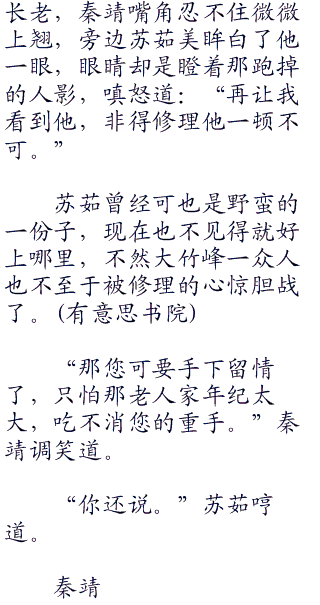 长老，秦靖嘴角忍不住微微
上翘，旁边苏茹美眸白了他
一眼，眼睛却是瞪着那跑掉
的人影，嗔怒道：“再让我
看到他，非得修理他一顿不
可。”
苏茹曾经可也是野蛮的
一份子，现在也不见得就好
上哪里，不然大竹峰一众人
也不至于被修理的心惊胆战
了。(有意思书院)
“那您可要手下留情
了，只怕那老人家年纪太
大，吃不消您的重手。”秦
靖调笑道。
“你还说。”苏茹哼
道。
秦靖